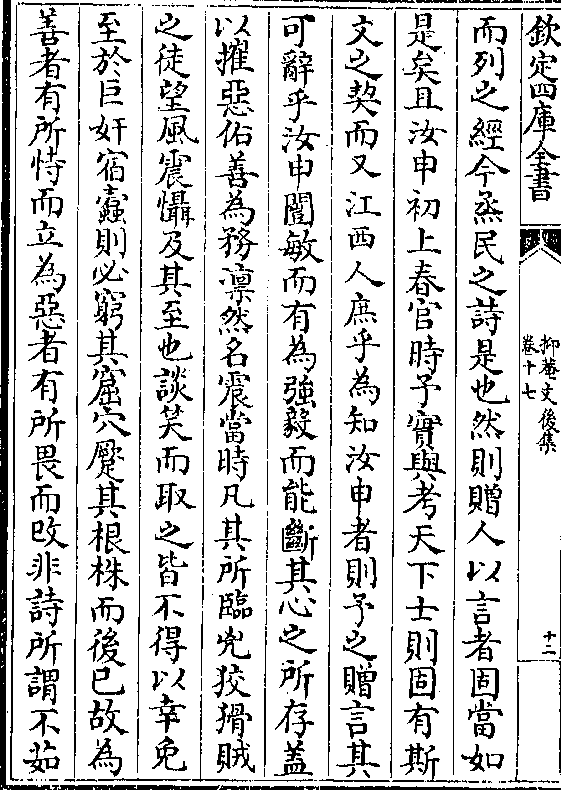 欽定四庫全書
抑菴文後集
卷十七
十二
而列之經今烝民之詩是也然則贈人以言者固當如
是矣且汝申初上春官時予實與考天下士則固有斯
文之契而又江西人庶乎為知汝申者則予之贈言其
可辭乎汝申闓敏而有為強毅而能斷其心之所存盖
以摧惡佑善為務凛然名震當時凡其所臨兇狡猾賊
之徒望風震懾及其至也談笑而取之皆不得以幸免
至於巨奸宿蠹則必窮其窟穴蹷其根株而後已故為
善者有所恃而立為惡者有所畏而改非詩所謂不茹